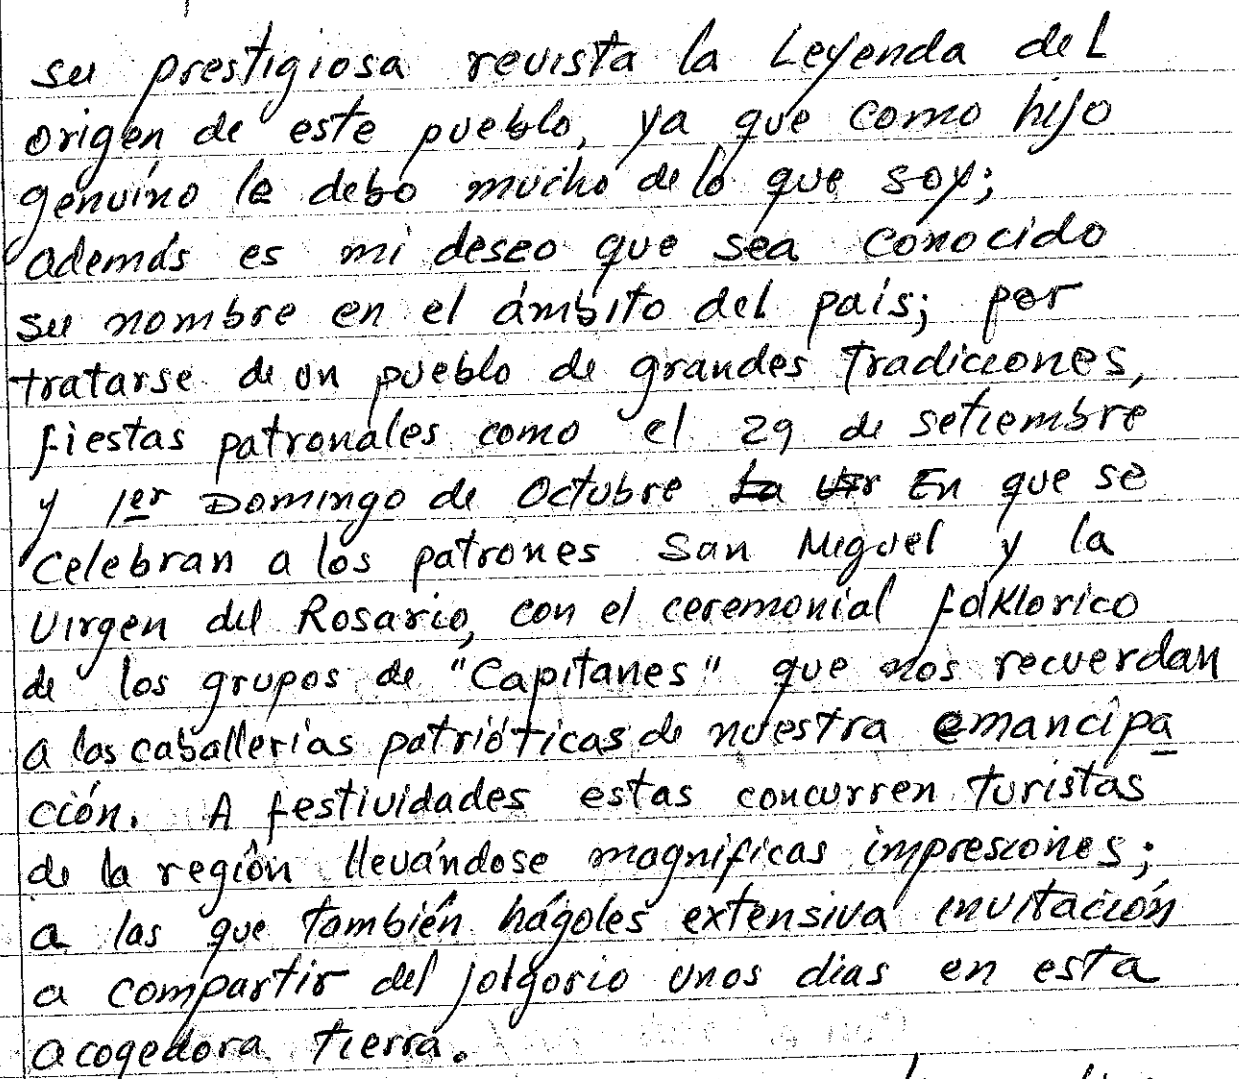 su prestigiosa revista la Leyenda del
origen de este pueblo, ya que como hijo
genuino le debo mucho de lo que soy;
además es mi deseo que sea conocido
su nombre en el ámbito del país; por
tratarse de un pueblo de grandes tradiciones,
fiestas patronales como el 29 de setiembre
y 1er Domingo de Octubre La En que se
celebran a los patrones San Miguel y la
Virgen del Rosario, con el ceremonial folklorico
de los grupos de "Capitanes" que nos recuerdan
a las caballerías patrióticas de nuestra emancipa
ción. A festividades estas concurren turistas
de la región llevándose magníficas impresiones;
a las que también hágoles extensiva invitación
a compartir del jolgorio unos dias en esta
acogedora tierra.